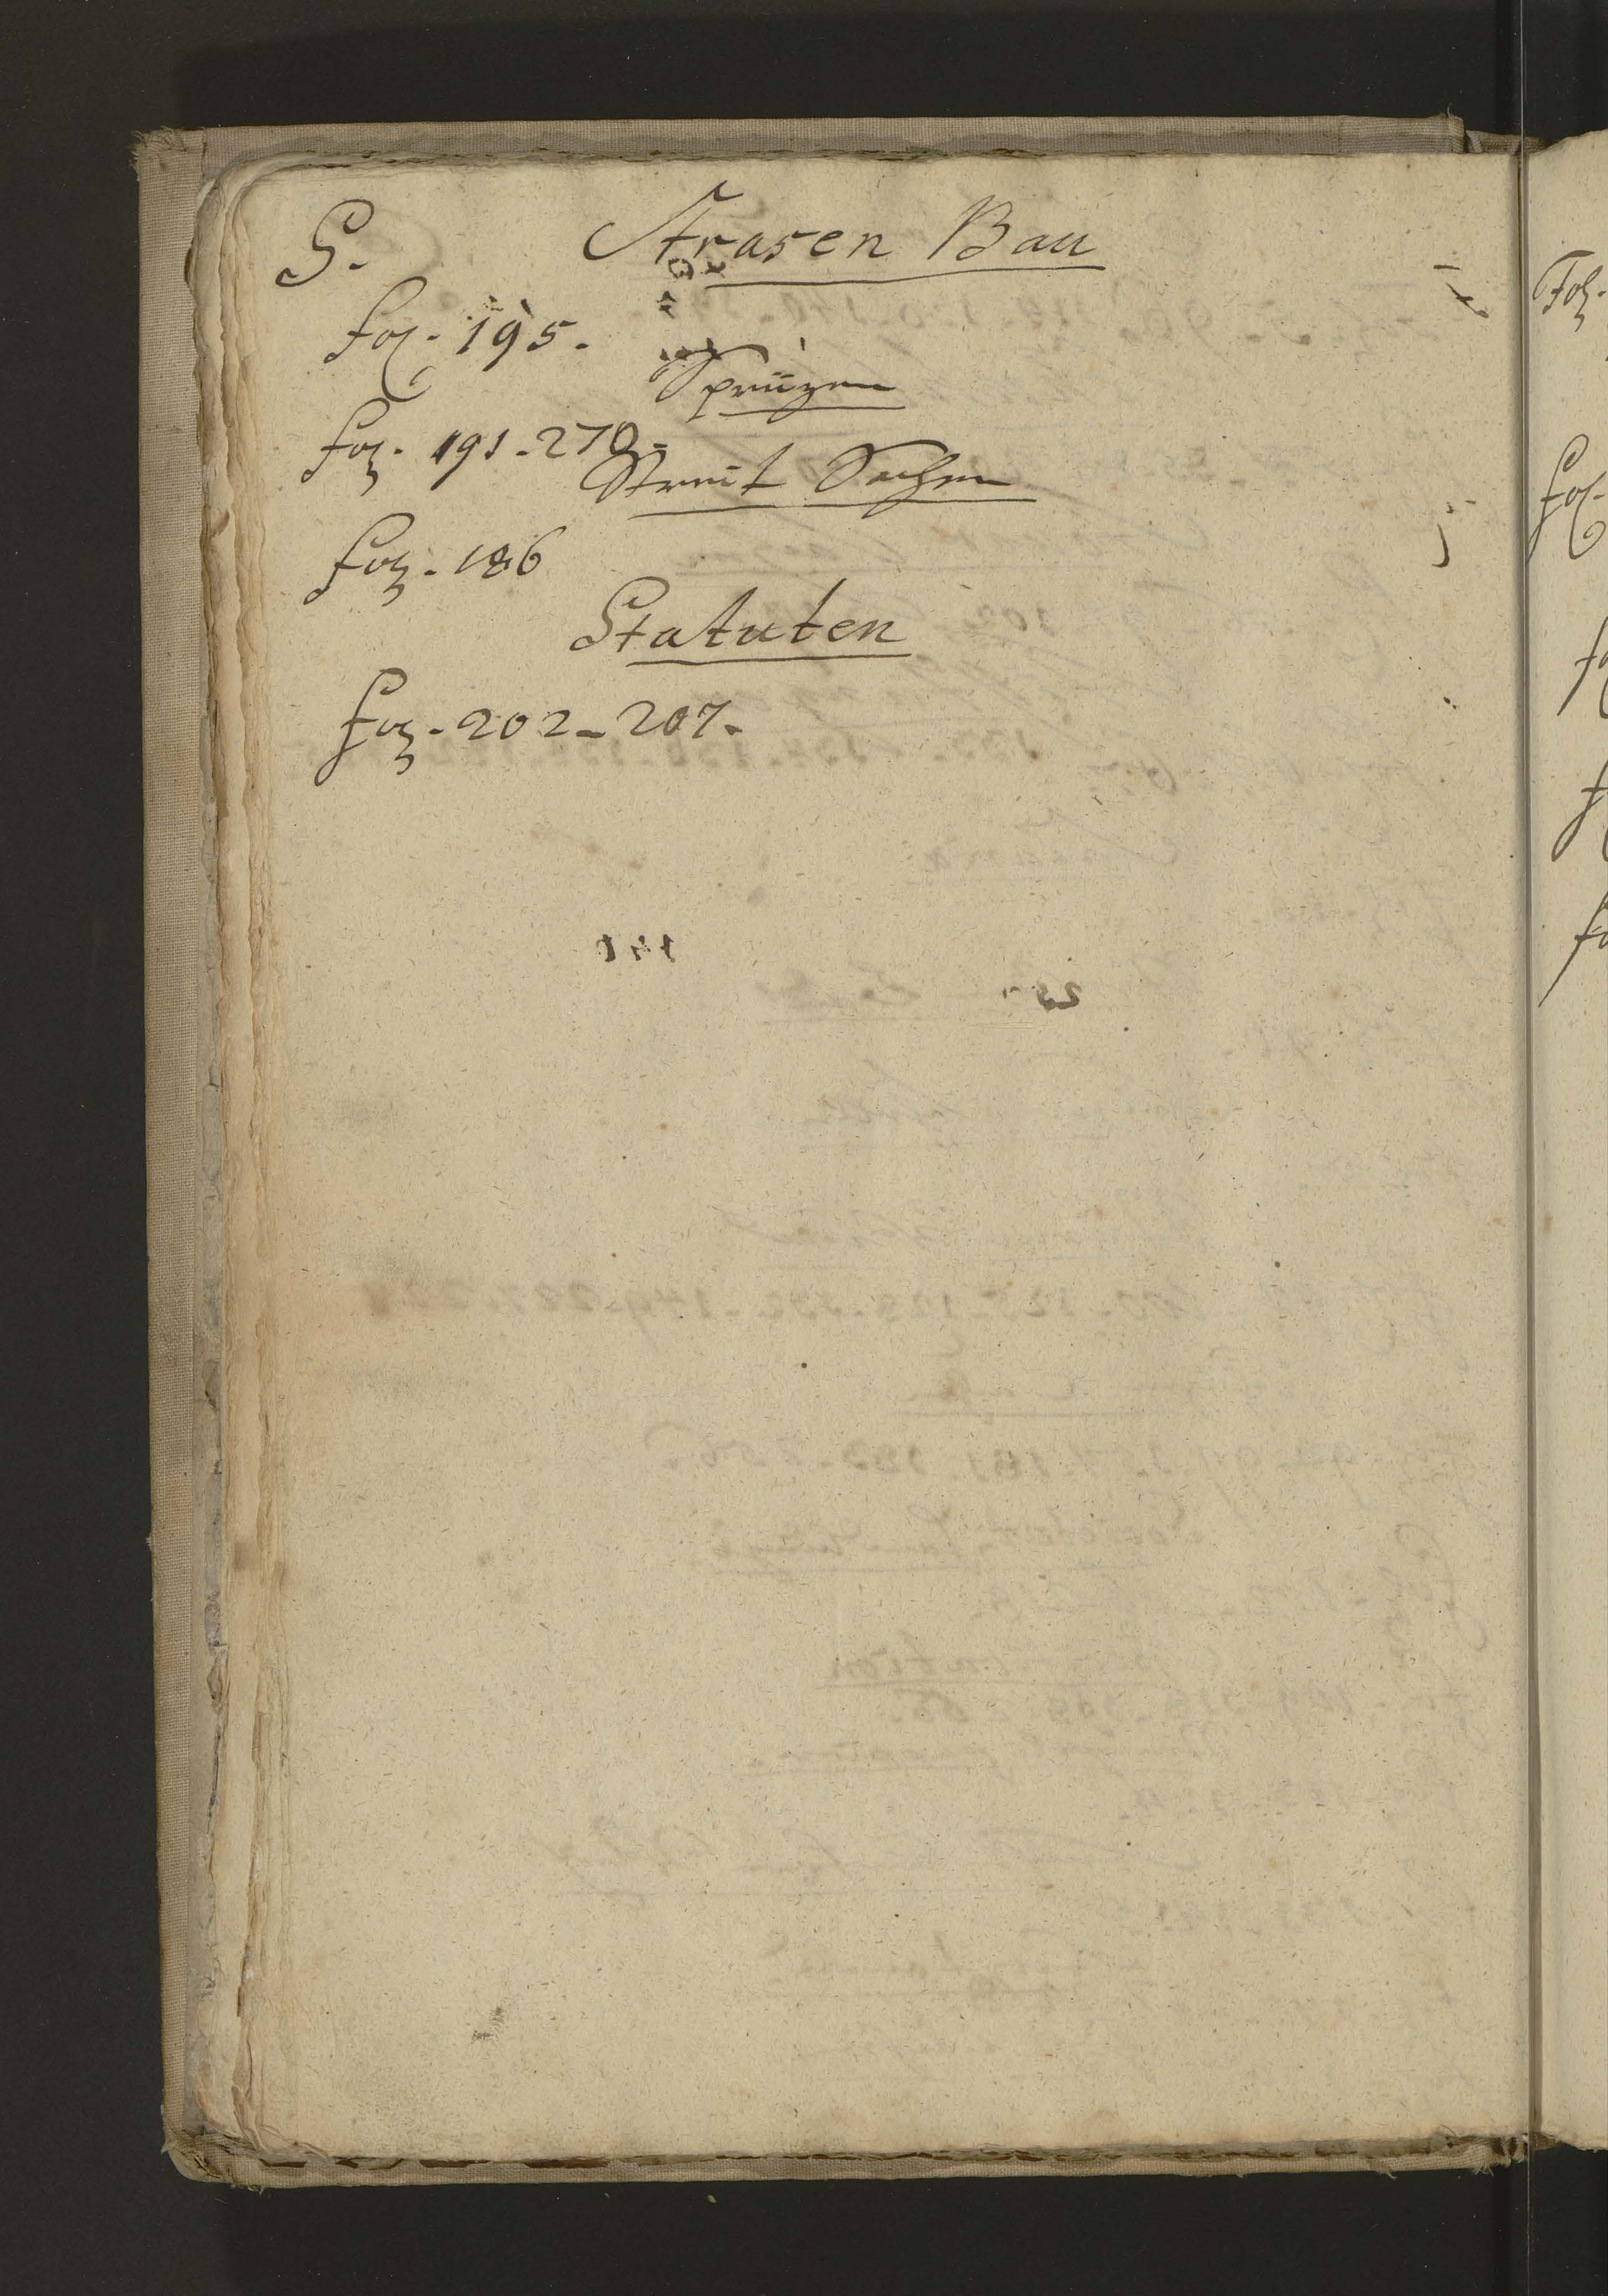 S. Strasen Bau
fol. 195.
Sprüzen
fol. 191-270.
Streit Sachen
fol. 186
Statuten
fol. 202-207.
Fol.
fol.